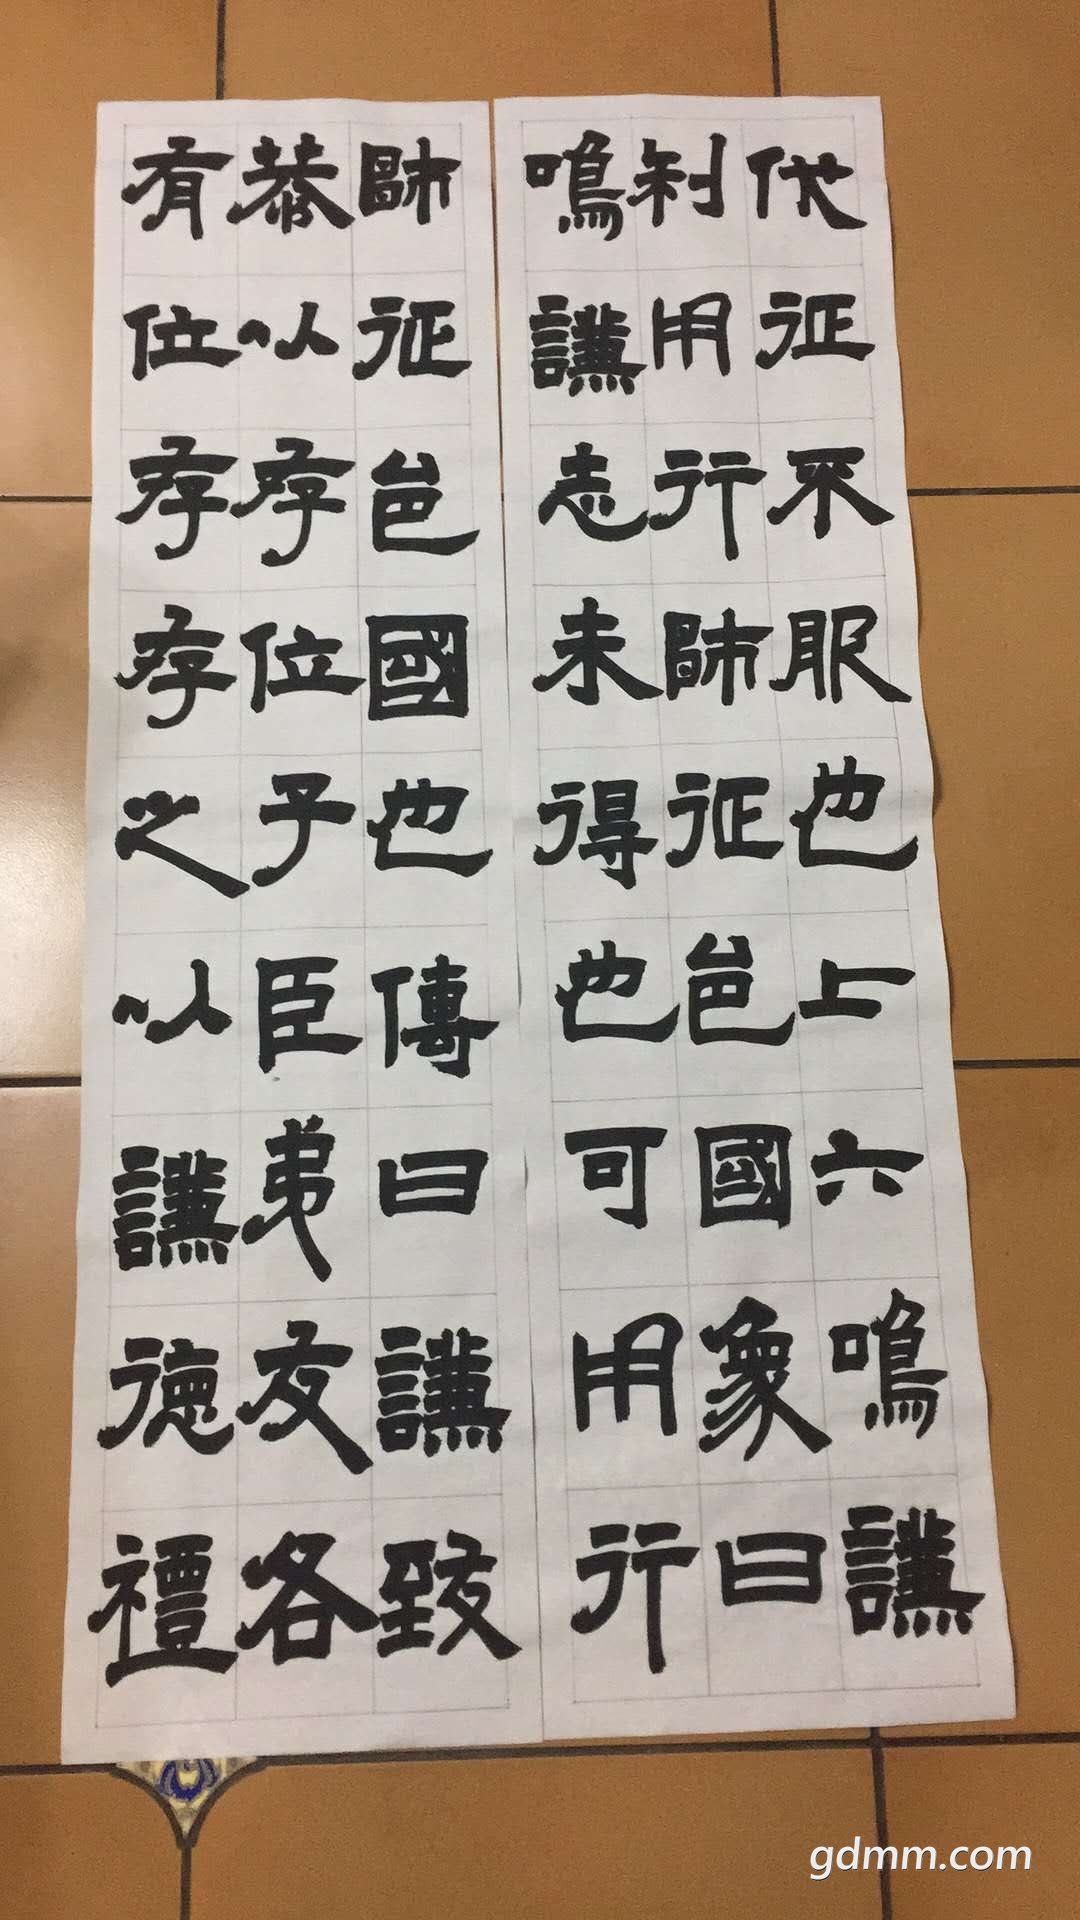 伐征不服也上六鳴謙
利用行師征邑國象曰
鳴謙志未得也可用行
師征邑國也傳曰謙致
恭以存位子臣弟友各
有位存存之以謙德禮
gdmm.com